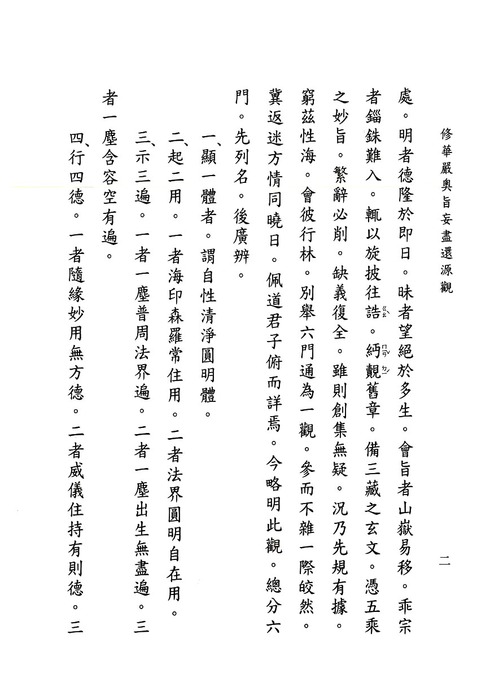 修華嚴奧旨妄盡還源觀
二
處。明者德隆於即日。昧者望絕於多生。會旨者山嶽易移。乖宗
者錙銖難入。輒以旋披往誥。緬覿舊章。備三藏之玄文。憑五乘
之妙旨。繁辭必削。缺義復全。雖則創集無疑。況乃先規有據。
窮茲性海。會彼行林。別舉六門通為一觀。參而不雜一際皎然。
冀返迷方情同曉日。佩道君子俯而詳焉。今略明此觀。總分六
門。先列名。後廣辨。
一、顯一體者。謂自性清淨圓明體。
二、起二用。一者海印森羅常住用。二者法界圓明自在用。
三、示三遍。一者一塵普周法界遍。二者一塵出生無盡遍。三
者一塵含容空有遍。
四、行四德。一者隨緣妙用無方德。二者威儀住持有則德。三